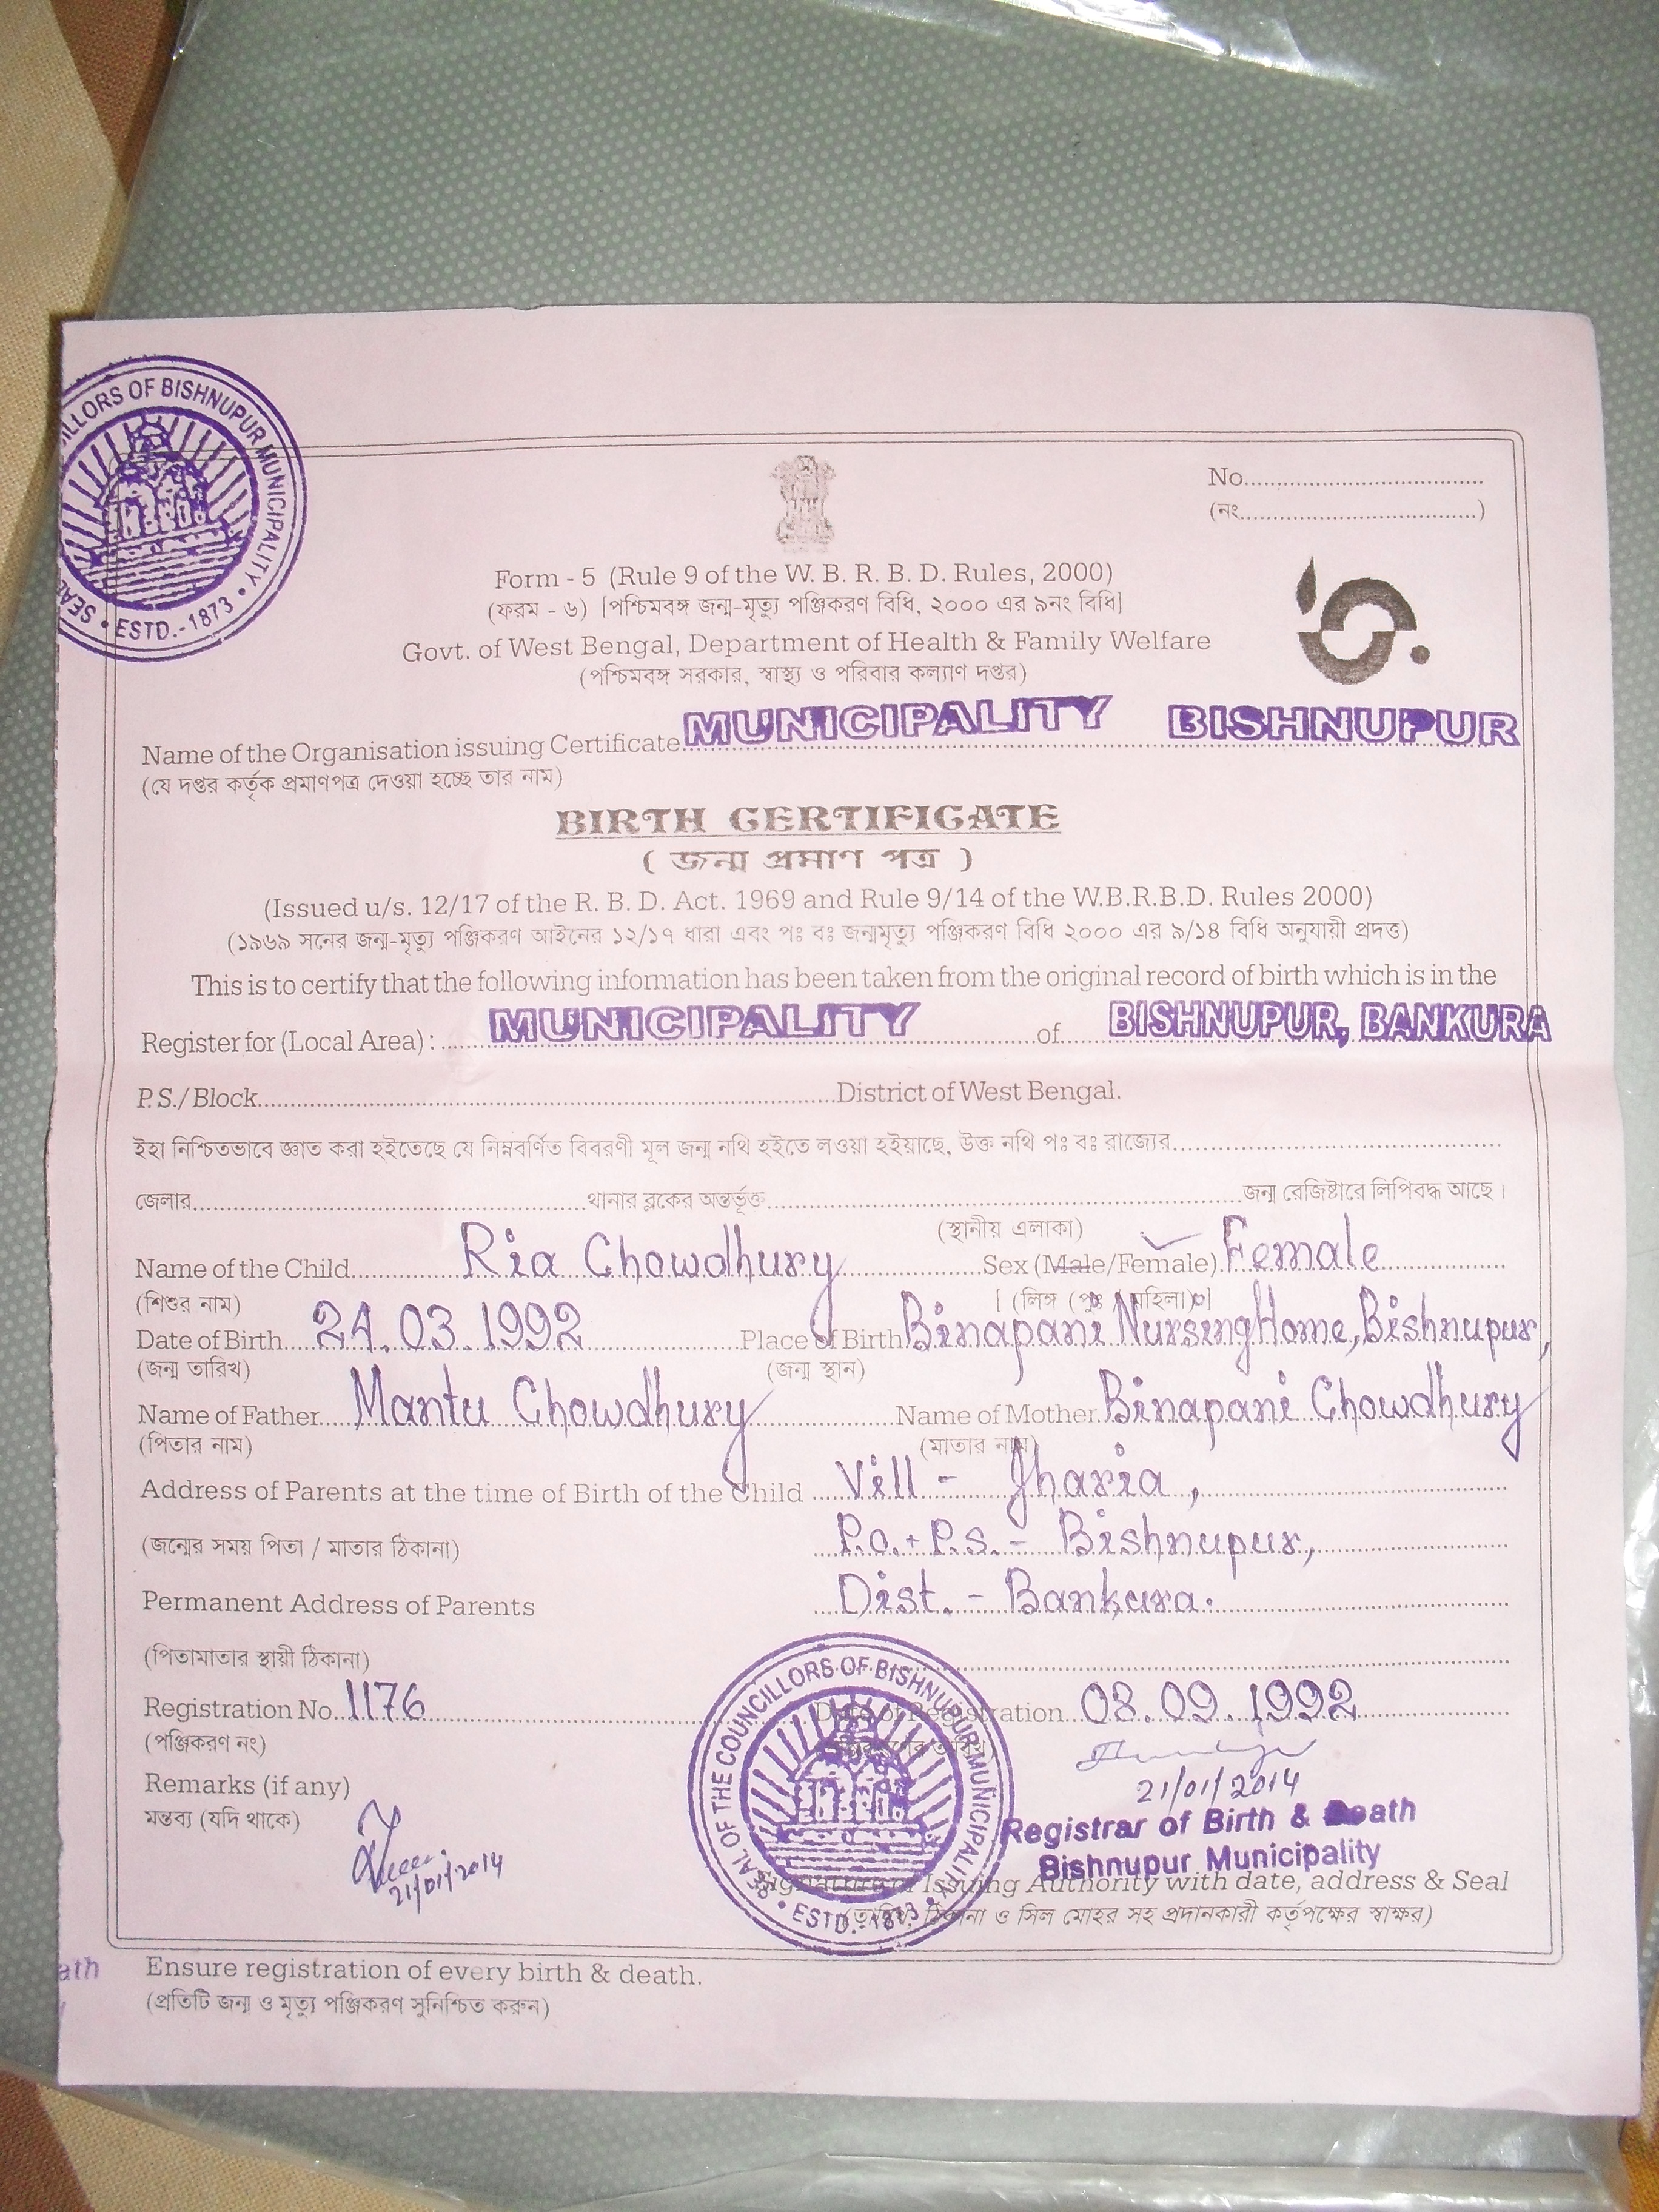 SEAL ILLORS OF BISHNUPUR MUNICIPALITY • ESTD.-1873 •
No.....................................
(নং....................................)
Form - 5 (Rule 9 of the W. B. R. B. D. Rules, 2000)
(ফরম - ৬) [পশ্চিমবঙ্গ জন্ম-মৃত্যু পঞ্জিকরণ বিধি, ২০০০ এর ৯নং বিধি]
Govt. of West Bengal, Department of Health & Family Welfare
(পশ্চিমবঙ্গ সরকার, স্বাস্থ্য ও পরিবার কল্যাণ দপ্তর)
Name of the Organisation issuing Certificate MUNICIPALITY BISHNUPUR
(যে দপ্তর কর্তৃক প্রমাণপত্র দেওয়া হচ্ছে তার নাম)
BIRTH CERTIFICATE
( জন্ম প্রমাণ পত্র )
(Issued u/s. 12/17 of the R. B. D. Act. 1969 and Rule 9/14 of the W.B.R.B.D. Rules 2000)
(১৯৬৯ সনের জন্ম-মৃত্যু পঞ্জিকরণ আইনের ১২/১৭ ধারা এবং পঃ বঃ জন্মমৃত্যু পঞ্জিকরণ বিধি ২০০০ এর ৯/১৪ বিধি অনুযায়ী প্রদত্ত)
This is to certify that the following information has been taken from the original record of birth which is in the
Register for (Local Area) : MUNICIPALITY of BISHNUPUR, BANKURA
P.S./ Block..........District of West Bengal.
ইহা নিশ্চিতভাবে জ্ঞাত করা হইতেছে যে নিম্নবর্ণিত বিবরণী মূল জন্ম নথি হইতে লওয়া হইয়াছে, উক্ত নথি পঃ বঃ রাজ্যের..........
জেলার..........থানার ব্লকের অন্তর্ভূক্ত..........জন্ম রেজিষ্টারে লিপিবদ্ধ আছে।
(স্থানীয় এলাকা)
Name of the Child Ria Chowdhury Sex (Male/Female) Female
(শিশুর নাম) [ (লিঙ্গ (পুঃ মহিলা) ]
Date of Birth 24.03.1992 Place of Birth Binapani Nursing Home, Bishnupur,
(জন্ম তারিখ) (জন্ম স্থান)
Name of Father Mantu Chowdhury Name of Mother Binapani Chowdhury
(পিতার নাম) (মাতার নাম)
Address of Parents at the time of Birth of the Child Vill - Jharia,
(জন্মের সময় পিতা / মাতার ঠিকানা) P.O. + P.S. - Bishnupur,
Permanent Address of Parents Dist. - Bankura.
(পিতামাতার স্থায়ী ঠিকানা)
Registration No. 1176 Date of Registration 08.09.1992
(পঞ্জিকরণ নং)
Remarks (if any)
মন্তব্য (যদি থাকে)
21/01/2014
SEAL OF THE COUNCILLORS OF BISHNUPUR MUNICIPALITY • ESTD.-1873 •
21/01/2014
Registrar of Birth & Death
Bishnupur Municipality
Signature of Issuing Authority with date, address & Seal
(তারিখ, ঠিকানা ও সিল মোহর সহ প্রদানকারী কর্তৃপক্ষের স্বাক্ষর)
ath
Ensure registration of every birth & death.
(প্রতিটি জন্ম ও মৃত্যু পঞ্জিকরণ সুনিশ্চিত করুন)